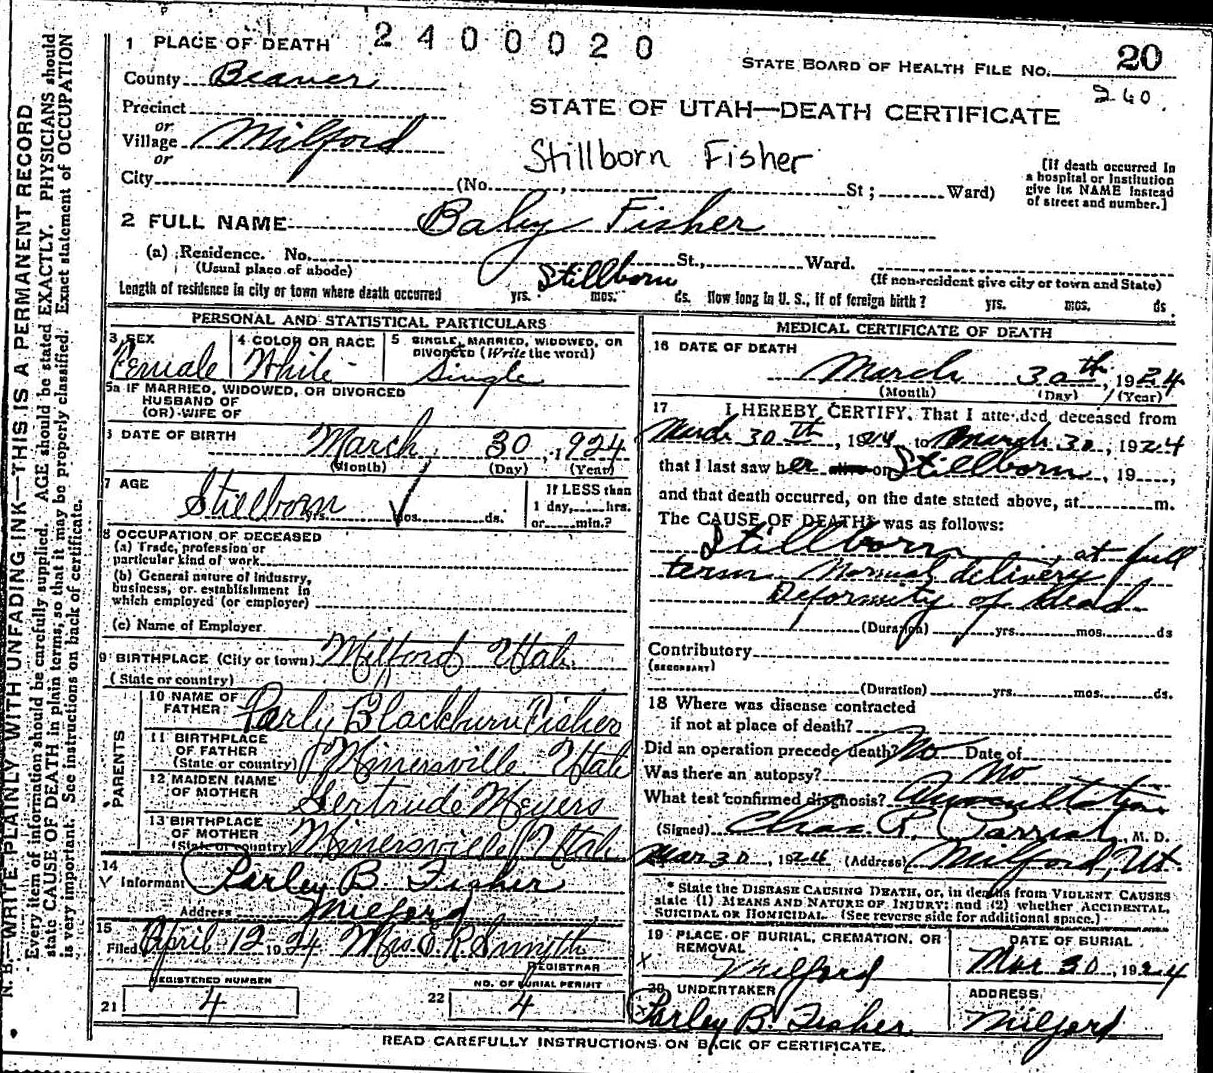 2400020
1 PLACE OF DEATH
STATE BOARD OF HEALTH FILE NO. 20
County Beaver
260.
Precinct
STATE OF UTAH—DEATH CERTIFICATE
or
Village Milford
or
Stillborn Fisher
[If death occurred in a hospital or institution give its NAME instead of street and number.]
City (No. , St; Ward)
2 FULL NAME Baby Fisher
(a) Residence. No. St., Ward.
(Usual place of abode) (If non-resident give city or town and State)
Length of residence in city or town where death occurred Stillborn yrs. mos. ds. How long in U. S., if of foreign birth? yrs. mos. ds.
PERSONAL AND STATISTICAL PARTICULARS
3 SEX Female
4 COLOR OR RACE White
5 SINGLE, MARRIED, WIDOWED, OR DIVORCED (Write the word) Single
5a IF MARRIED, WIDOWED, OR DIVORCED
HUSBAND OF
(OR) WIFE OF
6 DATE OF BIRTH March 30, 1924
(Month) (Day) (Year)
7 AGE Stillborn yrs. mos. ds.
If LESS than
1 day, hrs.
or min.?
8 OCCUPATION OF DECEASED
(a) Trade, profession or
particular kind of work
(b) General nature of industry,
business, or establishment in
which employed (or employer)
(c) Name of Employer
9 BIRTHPLACE (City or town) Milford Utah.
(State or country)
PARENTS
10 NAME OF
FATHER Parly Blackburn Fisher
11 BIRTHPLACE
OF FATHER
(State or country) Minersville Utah
12 MAIDEN NAME
OF MOTHER Gertrude Meyers
13 BIRTHPLACE
OF MOTHER
(State or country) Minersville Utah
14
Informant Parley B. Fisher
Address Milford
15
Filed April 12 1924 Mrs. E. R. Smyth
REGISTRAR
REGISTERED NUMBER
21 4
NO. OF BURIAL PERMIT
22 4
MEDICAL CERTIFICATE OF DEATH
16 DATE OF DEATH
March 30th, 1924
(Month) (Day) (Year)
17 I HEREBY CERTIFY, That I attended deceased from
March 30th, 1924 to March 30, 1924
that I last saw her alive on Stillborn, 19 ,
and that death occurred, on the date stated above, at m.
The CAUSE OF DEATH* was as follows:
Stillborn, at full
term normal delivery
Deformity of Head
(Duration) yrs. mos. ds
Contributory
(SECONDARY)
(Duration) yrs. mos. ds.
18 Where was disease contracted
if not at place of death?
Did an operation precede death? No Date of
Was there an autopsy? No
What test confirmed diagnosis? Auscultation
(Signed) Chas R. Parrish, M. D.
Mar 30, 1924 (Address) Milford, Ut.
* State the DISEASE CAUSING DEATH, or, in deaths from VIOLENT CAUSES
state (1) MEANS AND NATURE OF INJURY; and (2) whether ACCIDENTAL,
SUICIDAL OR HOMICIDAL. (See reverse side for additional space.)
19 PLACE OF BURIAL, CREMATION, OR
REMOVAL
Milford
DATE OF BURIAL
Mar 30, 1924
20 UNDERTAKER
Parley B. Fisher.
ADDRESS
Milford
READ CAREFULLY INSTRUCTIONS ON BACK OF CERTIFICATE.
N. B.—WRITE PLAINLY WITH UNFADING INK—THIS IS A PERMANENT RECORD
Every item of information should be carefully supplied. AGE should be stated EXACTLY. PHYSICIANS should
state CAUSE OF DEATH in plain terms, so that it may be properly classified. Exact statement of OCCUPATION
is very important. See instructions on back of certificate.